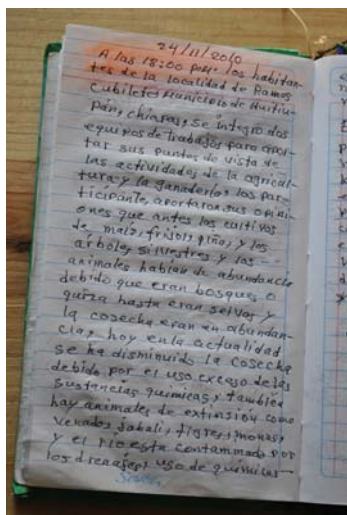 24/11/2010
A las 18:00 p.m. los habitan-
tes de la localidad de Ramos
Cubiletes Municipio de Huitiu-
pán, chiapas, se integro dos
equipos de trabajos para apor-
tar sus puntos de vista de
las actividades de la agricul-
tura y la ganaderia, los par-
ticipante, aportaron sus opini-
ones que antes los cultivos
de maiz, frijol, piña, y los
árboles silvestres y los --
animales habian de abundancia
debido que eran bosques o
quiza hasta eran selvas y
la cosecha eran en abundan-
cia, hoy en la actualidad
se ha disminuido la cosecha
debido por el uso exceso de las
sustancias quimicas, tambien
hay animales de extinsión como
venados, Jabali, tigres, monos,
y el rio esta contaminado por
los drenajes, uso de quimicas